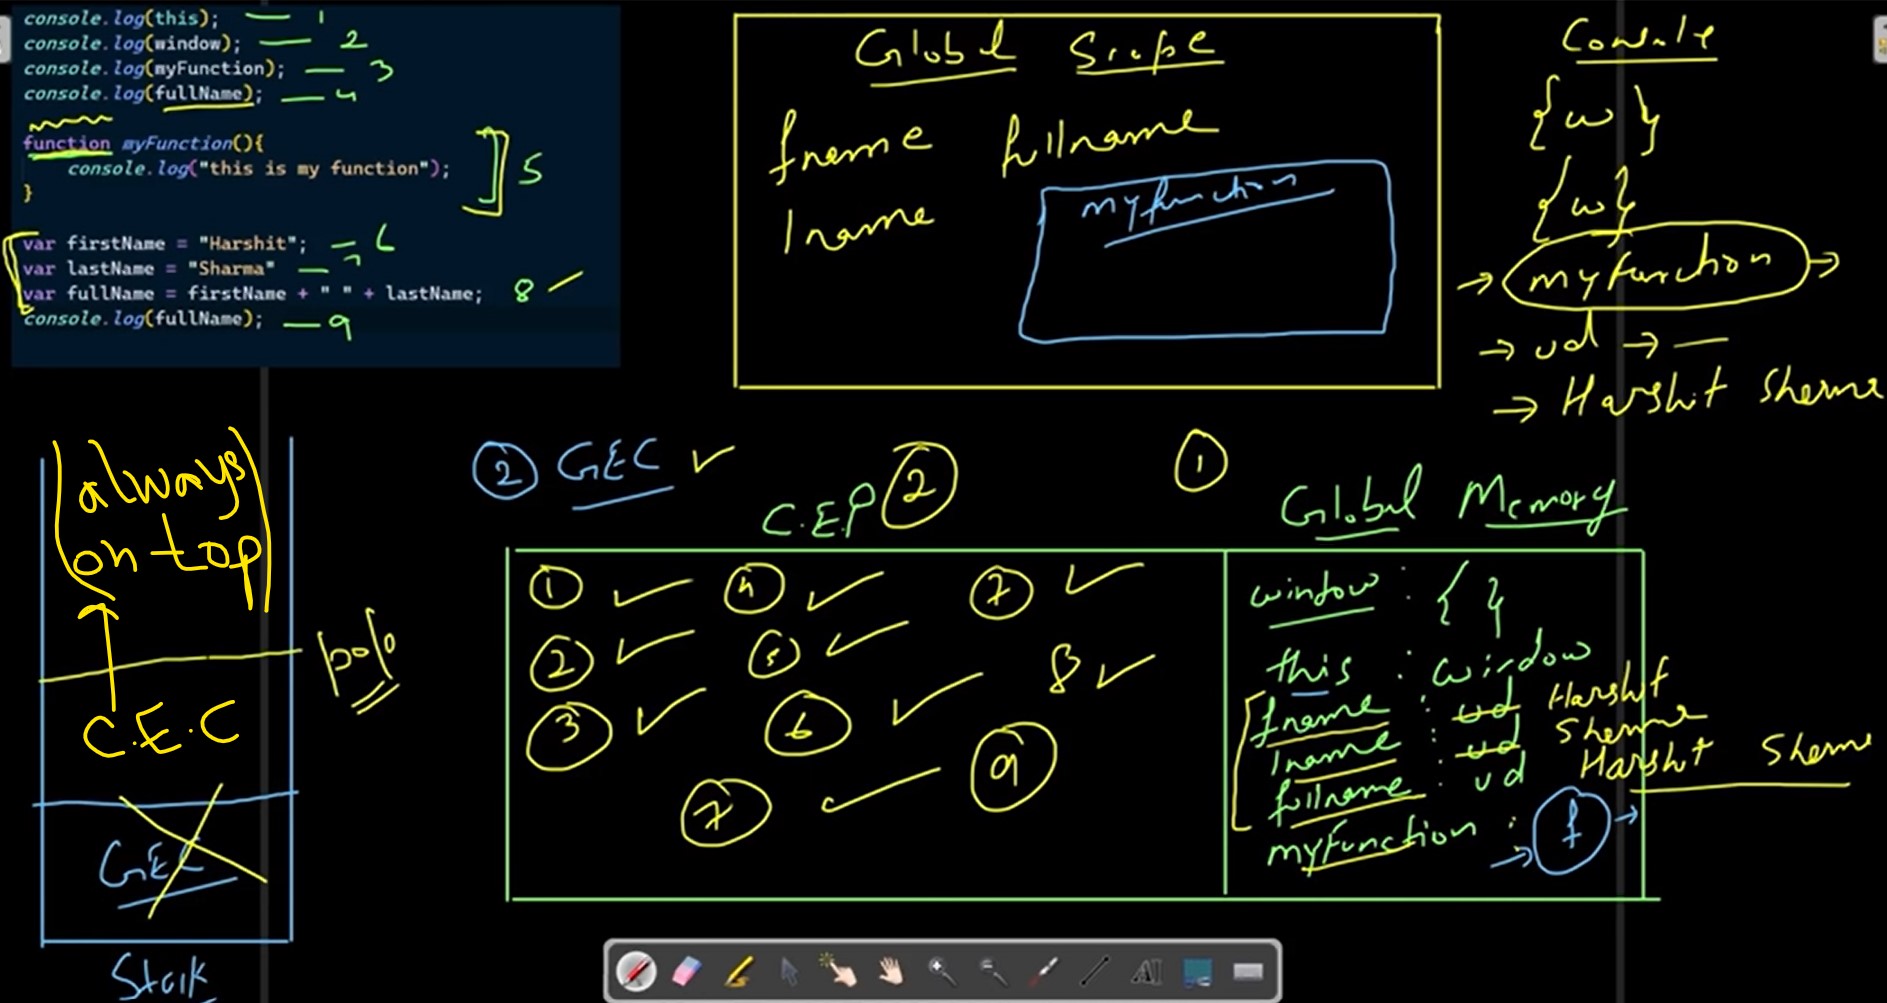 console.log(this); — 1
console.log(window); — 2
console.log(myFunction); — 3
console.log(fullName); — 4
function myFunction(){
console.log("this is my function");
}
5
var firstName = "Harshit"; — 6
var lastName = "Sharma" — 7
var fullName = firstName + " " + lastName; 8
console.log(fullName); — 9
Global Scope
fname fullname
lname
myfunction
Console
{w}
{w}
→ myfunction →
→ ud → —
→ Harshit Sharma
always
on top
C.E.C
GEC
Stack
pop
2 GEC
C.E.P 2
1
Global Memory
1 4 7
2 5 8
3 6 9
7
window : { }
this : window
fname : ud Harshit
lname : ud Sharma
fullname : ud Harshit Sharma
myFunction : → f →
AI